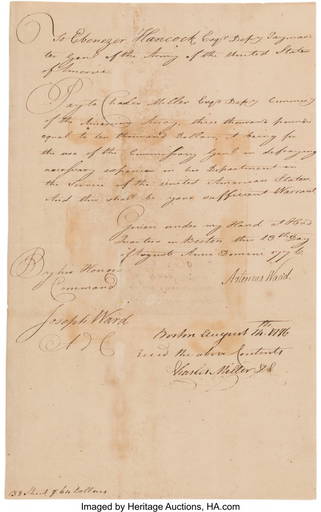 To Ebenezer Hancock Esqr Depy Paymas
ter Genl of the Army of the United States
of America
Pay to Charles Miller Esqr Depy Commissy
of the American Army, three thousand pounds
equal to ten thousand Dollars, it being for
the use of the Commissary Genl in defraying
necessary expences in his Department in
the Service of the United American States
And this shall be your sufficient Warrant
Given under my Hand at Head
Quarters in Boston this 13th Day
of August Anno Domini 1776
Artemas Ward
By his Honors
Command
Joseph Ward
A D C
Boston August 14th 1776
the above Contents
Charles Miller D C
Dollars
Imaged by Heritage Auctions, HA.com